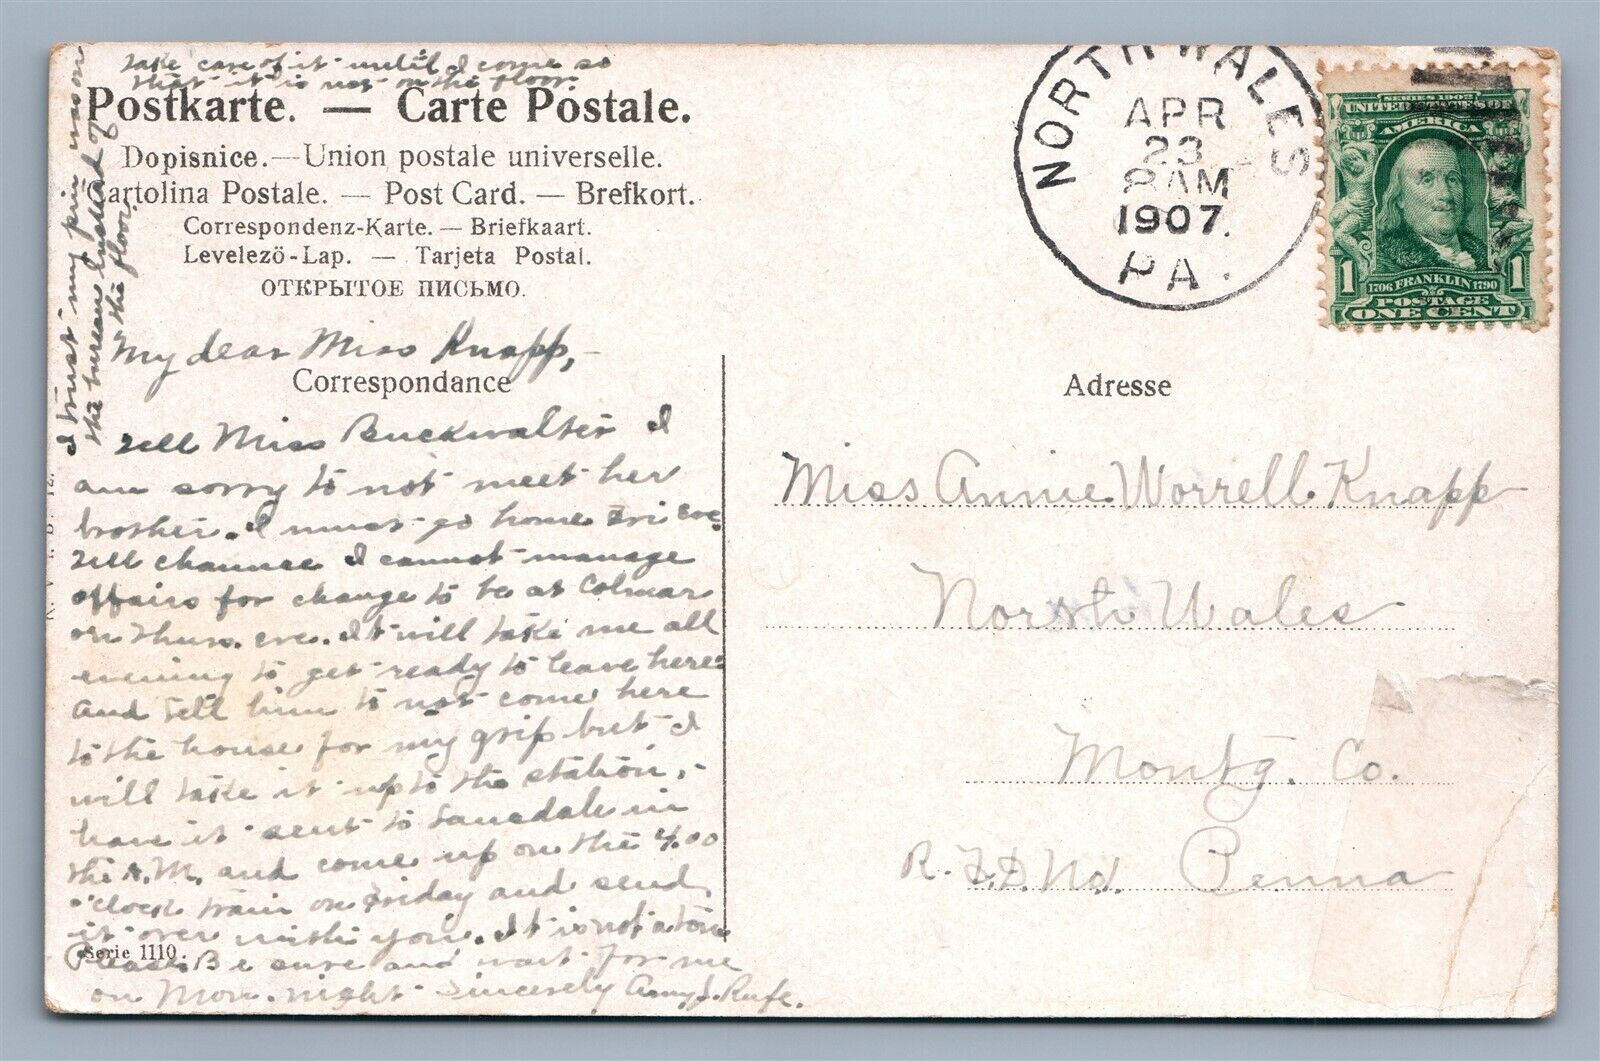 take care of it until I come so
that it is not on the floor.
Postkarte. — Carte Postale.
Dopisnice. — Union postale universelle.
Cartolina Postale. — Post Card. — Brefkort.
Correspondenz-Karte. — Briefkaart.
Levelezö-Lap. — Tarjeta Postal.
ОТКРЫТОЕ ПИСЬМО.
I trust my pin is on
the bureau instead of
the floor.
My dear Miss Knapp,-
Correspondance
Tell Miss Buckwalter I
am sorry to not meet her
brother. I must go home Fri eve.
Tell chaunce I cannot manage
affairs for change to be at Colmar
on Thurs. eve. It will take me all
evening to get ready to leave here
and tell him to not come here
to the house for my grip but I
will take it up to the station,-
have it sent to Lansdale in
the A.M. and come up on the 4.00
o'clock train on Friday and send
it over with you. It is not a ton
Serie 1110.
Please Be sure and wait for me
on Mon. night Sincerely Amy J. Rufe.
NORTH WALES
APR
23
8 AM
1907.
PA.
SERIES 1902
UNITED STATES OF
AMERICA
1 1
1706 FRANKLIN 1790
POSTAGE
ONE CENT
Adresse
Miss Annie Worrell Knapp
North Wales
Montg. Co.
R.F.D. No1. Penna